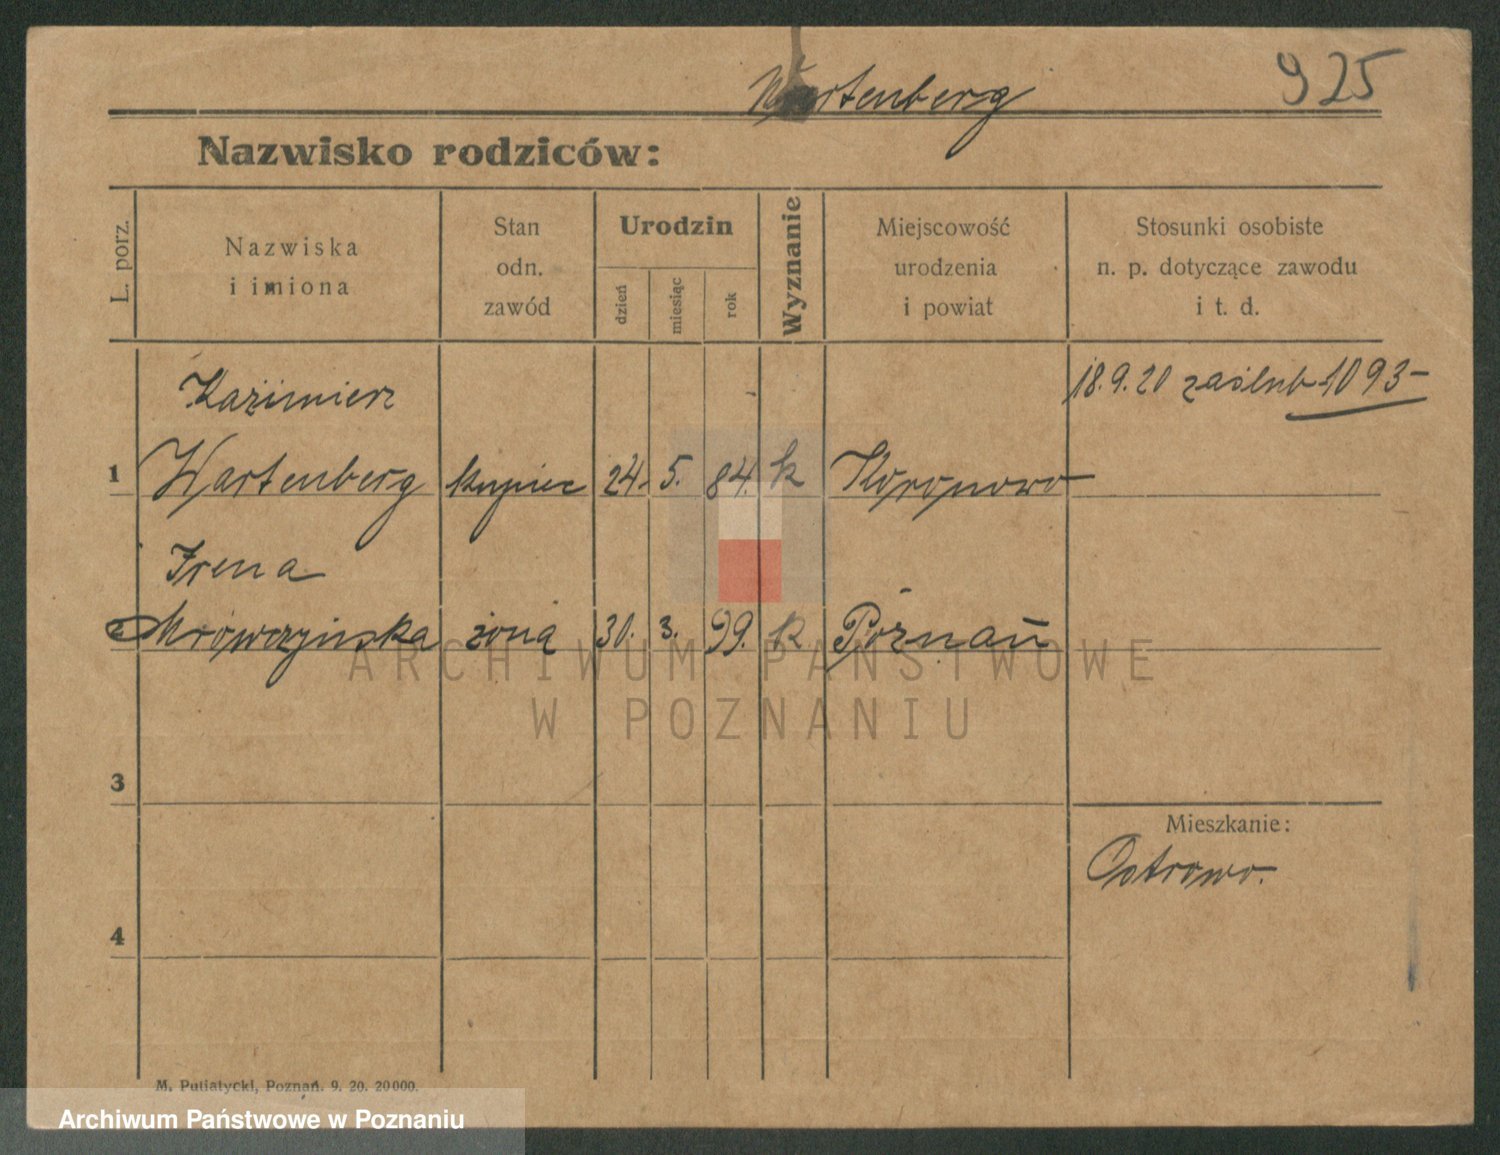 Wartenberg
925
Nazwisko rodziców:
L. porz.
Nazwiska
i imiona
Stan
odn.
zawód
Urodzin
dzień
miesiąc
rok
Wyznanie
Miejscowość
urodzenia
i powiat
Stosunki osobiste
n. p. dotyczące zawodu
i t. d.
Kazimierz
18.9.20 zaślub 1093-
1 Wartenberg kupiec 24. 5. 84. k Koronowo
Irena
2 Mrówczyńska żona 30. 3. 99. k Poznań
ARCHIWUM PAŃSTWOWE
W POZNANIU
3
Mieszkanie:
Ostrowo.
4
M. Putiatycki, Poznań. 9. 20. 20000.
Archiwum Państwowe w Poznaniu